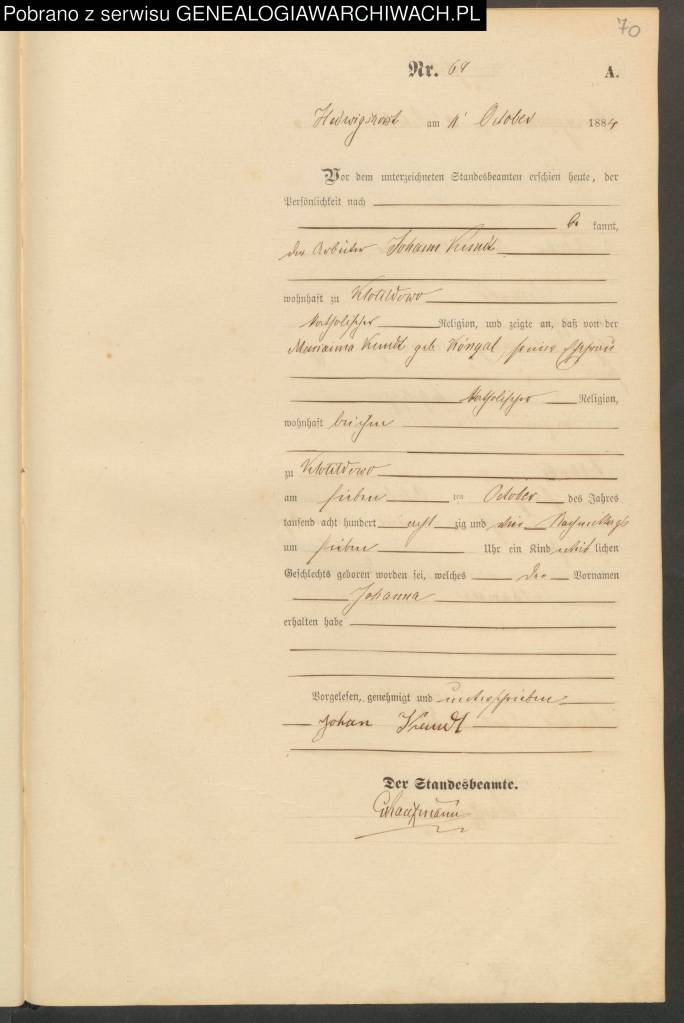 Pobrano z serwisu GENEALOGIAWARCHIWACH.PL
70
Nr. 69
A.
Hedwigshorst am 11 October 1884
Vor dem unterzeichneten Standesbeamten erschien heute, der
Persönlichkeit nach
be kannt,
der Arbeiter Johann Kendt
wohnhaft zu Klotildowo
katholischer Religion, und zeigte an, daß von der
Marianna Kendt geb. seiner Ehefrau
katholischer Religion,
wohnhaft bei ihm
zu Klotildowo
am sieben ten October des Jahres
tausend acht hundert acht zig und vier Nachmittags
um sieben Uhr ein Kind weib lichen
Geschlechts geboren worden sei, welches den Vornamen
Johanna
erhalten habe
Vorgelesen, genehmigt und unterschrieben
Johan Kendt
Der Standesbeamte.